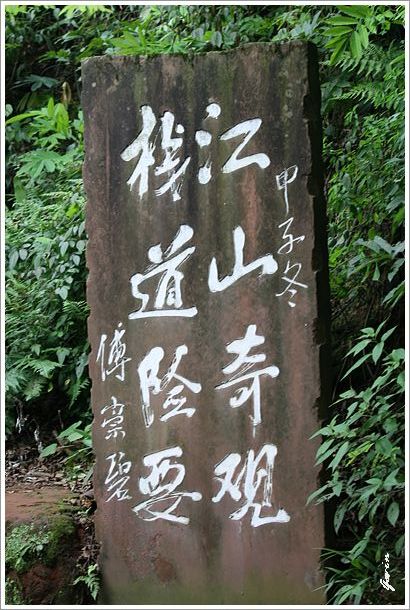 甲子冬
江山奇观
栈道险要
傅崇碧